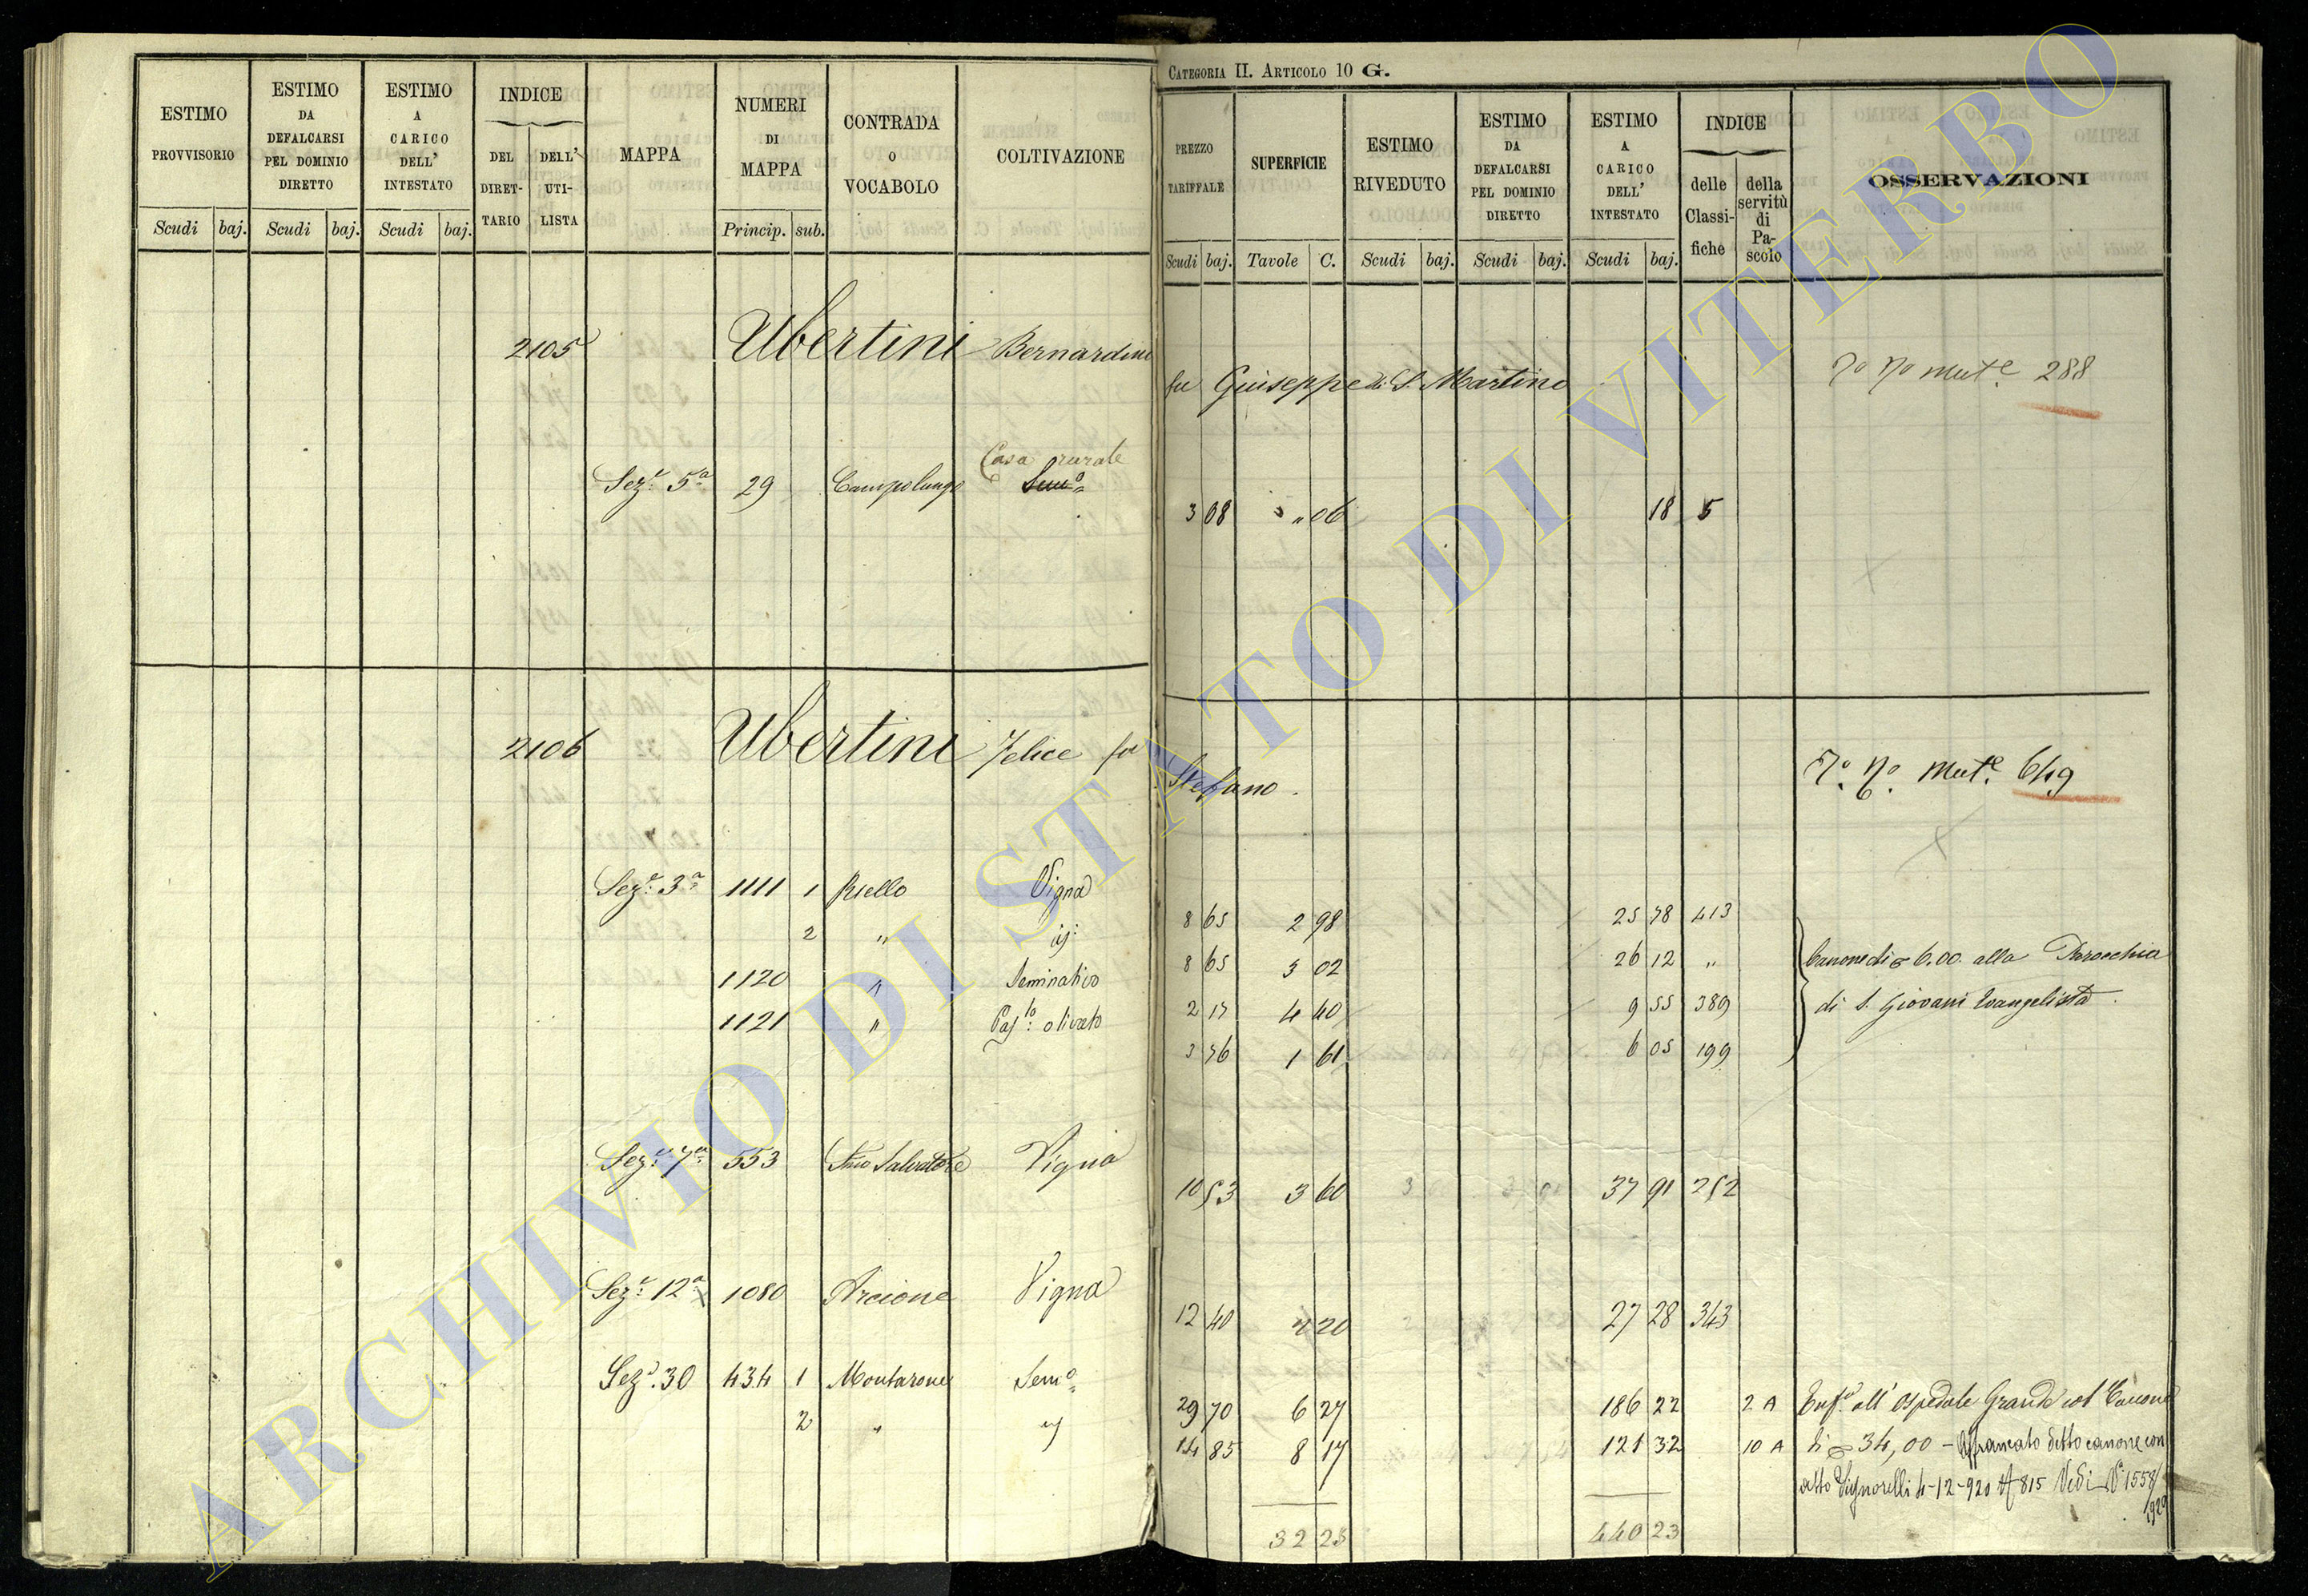 CATEGORIA II. ARTICOLO 10 G.
ESTIMO PROVVISORIO
ESTIMO DA DEFALCARSI PEL DOMINIO DIRETTO
ESTIMO A CARICO DELL' INTESTATO
INDICE
DEL DIRETTARIO
DELL' UTILISTA
MAPPA
NUMERI DI MAPPA
CONTRADA O VOCABOLO
COLTIVAZIONE
Scudi baj. Scudi baj. Scudi baj. Princip. sub.
PREZZO TARIFFALE
SUPERFICIE
ESTIMO RIVEDUTO
ESTIMO DA DEFALCARSI PEL DOMINIO DIRETTO
ESTIMO A CARICO DELL' INTESTATO
INDICE
delle Classifiche
della servitù di Pascolo
OSSERVAZIONI
Scudi baj. Tavole C. Scudi baj. Scudi baj. Scudi baj.
2105 Ubertini Bernardino
fu Giuseppe di S. Martino
Mute 288
Casa rurale
Sez.e 5a 29 Campolungo Semo
3 08 " 06 18 5
2106 Ubertini Felice fu
Stefano.
Mute 649
Sez.e 3a 1111 1 Riello Vigna 8 65 2 98 25 78 413
2 " id: 8 65 3 02 26 12 "
1120 " Seminativo 2 17 4 40 9 55 389
1121 " Pasto: olivato 3 76 1 61 6 05 199
Canone di 6.00. alla Parocchia
di S. Giovani Evangelista.
Sez.e 7a 553 Smo Salvatore Vigna 10 53 3 60 37 91 252
Sez.e 12a 1080 Arcione Vigna 12 40 2 20 27 28 343
Sez.e 30 434 1 Montarone Semo 29 70 6 27 186 22 2 A
2 " id 14 85 8 17 121 32 10 A
all' Ospedale Grande col Canone
di 34,00 – Affrancato detto canone con
atto Signorelli 4-12-920 815 Vedi N 1558/
1929
32 25 440 23
ARCHIVIO DI STATO DI VITERBO